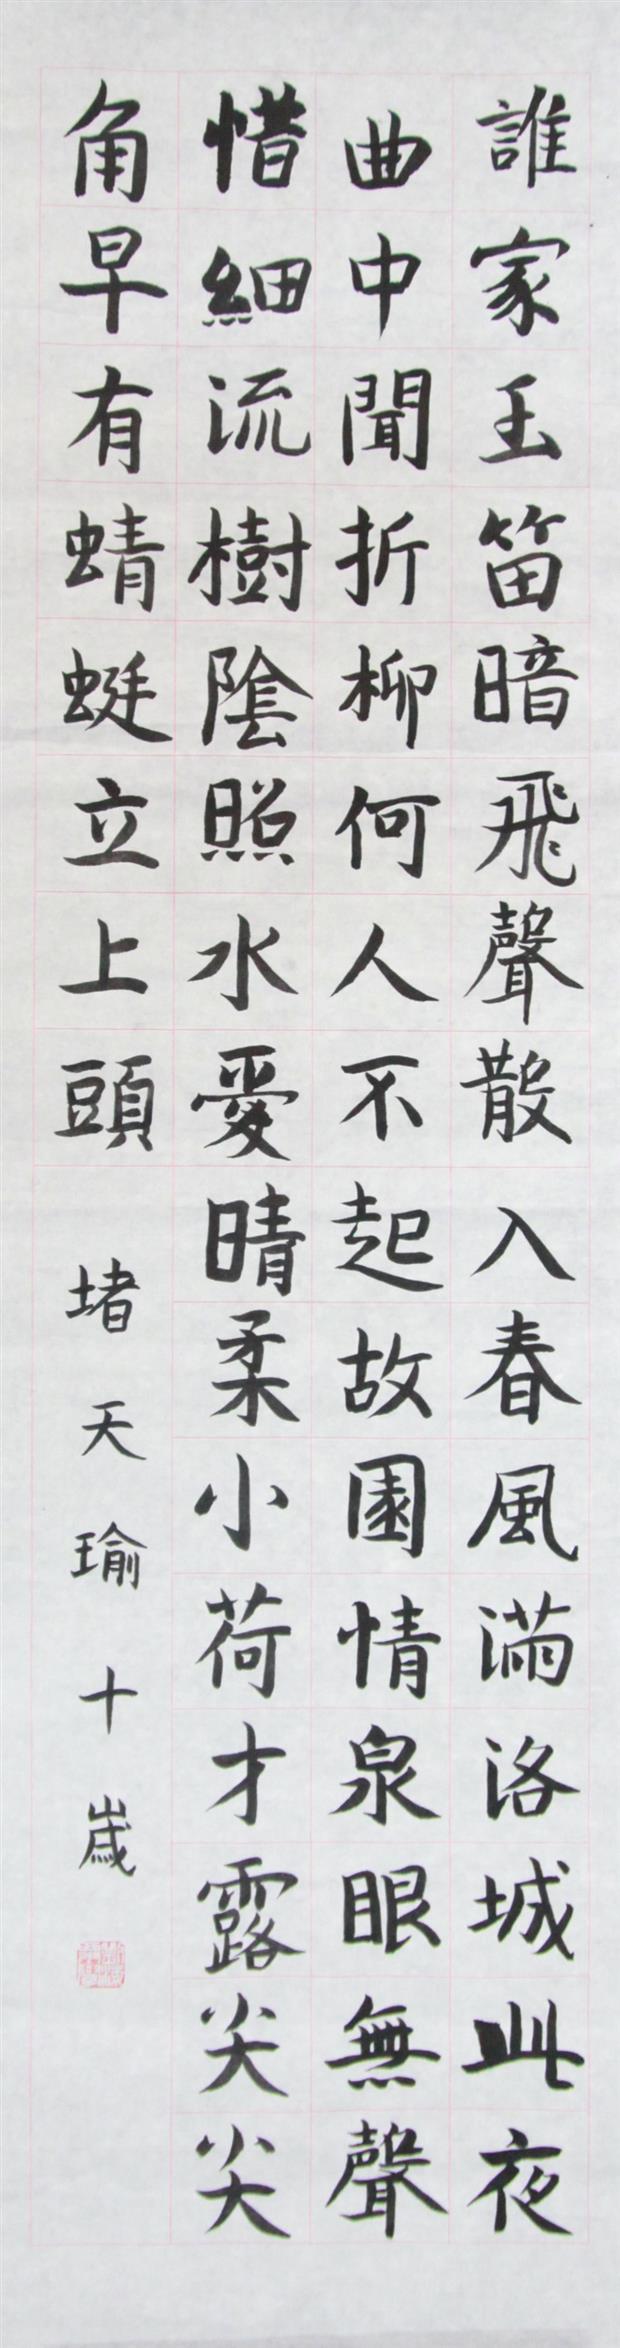 誰家玉笛暗飛聲散入春風滿洛城此夜
曲中聞折柳何人不起故園情泉眼無聲
惜細流樹陰照水愛晴柔小荷才露尖尖
角早有蜻蜓立上頭
堵天瑜十歲